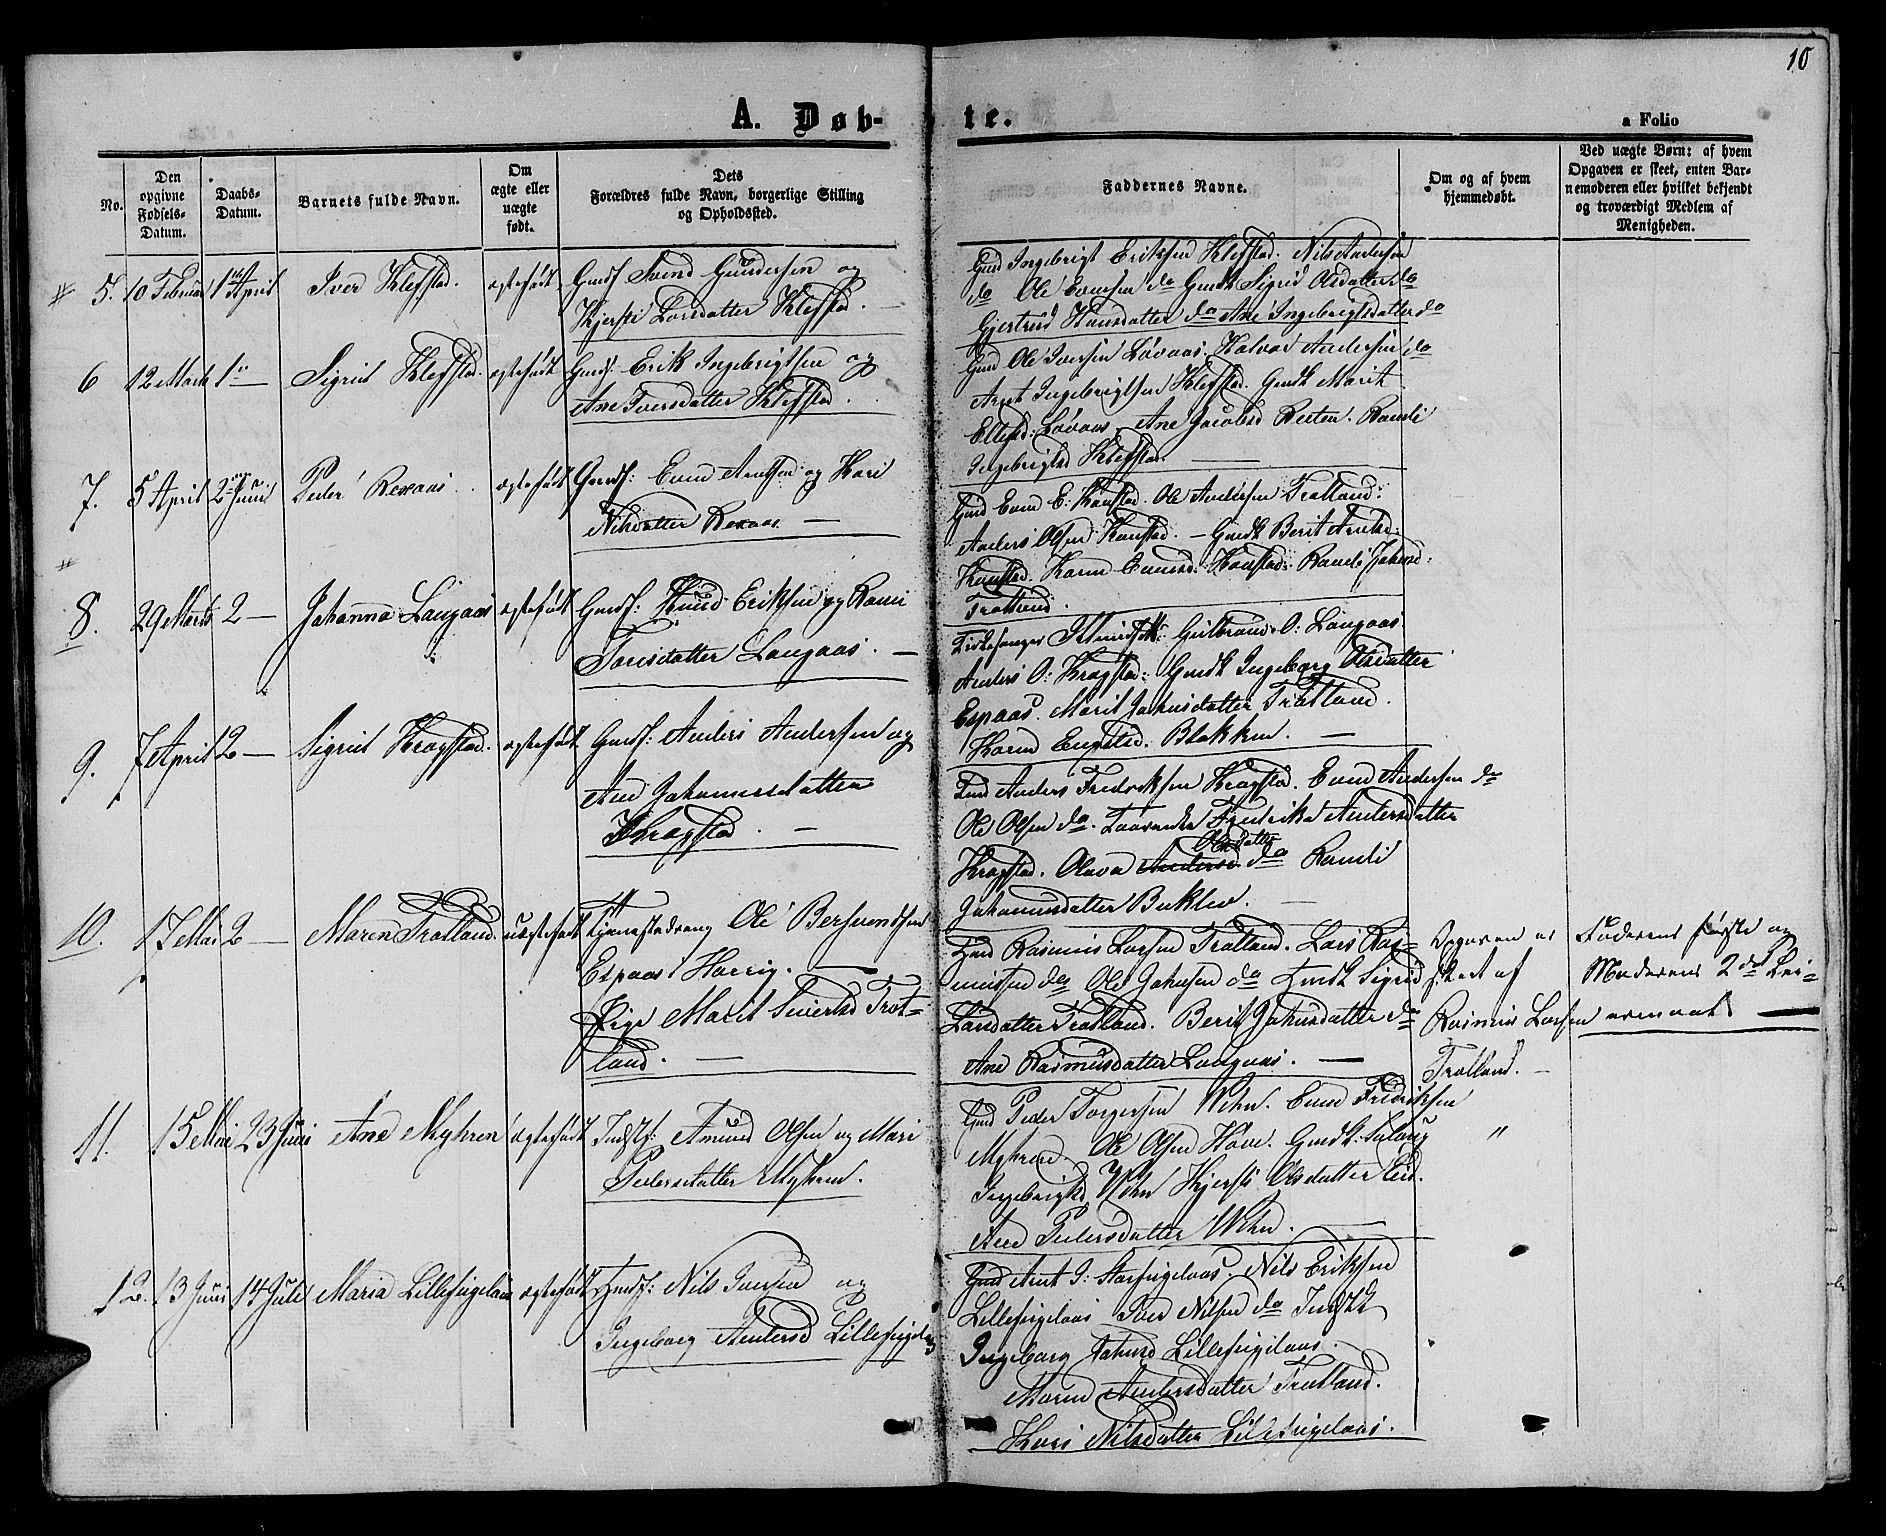 10
A. Døb-te.
a Folio
No.
Den opgivne Fødsels-Datum.
Daabs-Datum.
Barnets fulde Navn.
Om ægte eller uægte født.
Dets Forældres fulde Navn, borgerlige Stilling og Opholdssted.
Faddernes Navne.
Om og af hvem hjemmedøbt.
Ved uægte Børn: af hvem Opgaven er skeet, enten Barnemoderen eller hvilket bekjendt og troværdigt Medlem af Menigheden.
5. 10 Februar 1 April Iver Klefstad. ægtefødt
Gmdf Svend Gundersen og
Kjersti Larsdatter Klefstad.
Gmd Ingebrigt Eriksen Klefstad. Nils Andersen
do Ole Evensen do Gmdk Sigrid Olsdatter do
Gjertrud Hansdatter do Ane Ingebrigtsdatter do
6 12 Marts 1 — Sigrid Klefstad. ægtefødt
Gmdf: Erik Ingebrigtsen og
Ane Iversdatter Klefstad.
Gmd Ole Iversen Løvaas. Halvor Andersen do
Arnt Ingebrigtsen Klefstad. Gmdk Marit
Ellefsd: Løvaas. Ane Jacobsd Resten. Randi
Ingebrigtsd Klefstad. —
7. 5 April 2 Juni Peder Rexaas. ægtefødt
Gmdf: Even Arntsen og Kari
Nilsdatter Rexaas. —
Gmd Even E: Kanstad. Ole Andersen Trotland:
Anders Olsen Kanstad. — Gmdk Berit Arntsd:
Kanstad. Karen Evensd: Kanstad: Randi Johnsd:
Trotland.
8. 29 Marts 2 — Johanna Langaas ægtefødt
Gmdf: Knud Eriksen og Randi
Tomsdatter Langaas. —
Kirkesanger Gulbrand O: Langaas.
Anders O: Kragstad: Gmdk Ingeborg Olsdatter
Espaas. Marit Johnsdatter Trotland.
Karen Blekken. —
9. 7 April 2 — Sigrid Kragstad. ægtefødt
Gmdf: Anders Andersen og
Ane Johannesdatter
Kragstad. —
Gmd Anders Fredriksen Kragstad. Even Andersen do
Ole Olsen do. Fredrika Andersdatter
Olsdatter
Kragstad. Olava Andersd. do Randi
Johannesdatter —
10. 17 Mai 2 — Maren Trotland. uægtefødt
Tjenestedreng Ole Bersvendsen
Espaas i Horrig. —
Pige Marit Sivertsd Trot-
land. —
Gmd Rasmus Larsen Trotland. Lars Ras-
mussen do Ole Johnsen do Gmdk Sigrid
Larsdatter Trotland. Berit Johnsdatter do
Ane Rasmusdatter Langaas. —
Opgaven er
skeet af
Rasmus Larsen
Trotland. —
Faderens første og
Moderens 2det Lei-
ermaal —
11. 15 Mai 23 Juni Ane Myhren ægtefødt
Indstf: Amund Olsen og Mari
Pedersdatter Myhren.
Gmd Peder Torgersen Wehn. Even Fredriksen
Myhren. Ole Olsen Hove. Gmdk Solaug
Ingebrigtsd Wehn Kjersti Olsdatter Eid.
Ane Pedersdatter Wehn. —
"
12. 13 Juni 14 Juli Maria Lillefuglaas ægtefødt
Gmdf: Nils Iversen og
Ingeborg Andersd Lillefuglaas
Gmd Arnt I: Storfuglaas. Nils Eriksen
Lillefuglaas. Iver Nilsen do Indstk
Ingeborg Johnsd Lillefuglaas.
Maren Andersdatter Trotland.
Kari Nilsdatter Lillefuglaas.